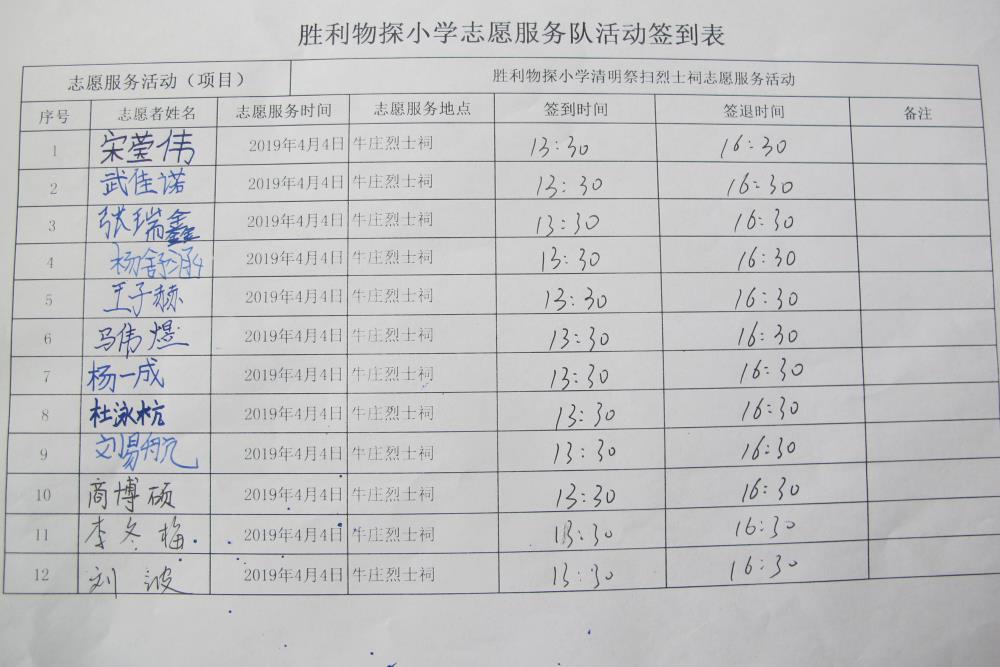 胜利物探小学志愿服务队活动签到表
志愿服务活动（项目） 胜利物探小学清明祭扫烈士祠志愿服务活动
序号 志愿者姓名 志愿服务时间 志愿服务地点 签到时间 签退时间 备注
1 宋莹伟 2019年4月4日 牛庄烈士祠 13:30 16:30
2 武佳诺 2019年4月4日 牛庄烈士祠 13:30 16:30
3 张瑞鑫 2019年4月4日 牛庄烈士祠 13:30 16:30
4 杨舒涵 2019年4月4日 牛庄烈士祠 13:30 16:30
5 王子赫 2019年4月4日 牛庄烈士祠 13:30 16:30
6 马伟煜 2019年4月4日 牛庄烈士祠 13:30 16:30
7 杨一成 2019年4月4日 牛庄烈士祠 13:30 16:30
8 杜泳杭 2019年4月4日 牛庄烈士祠 13:30 16:30
9 刘易航 2019年4月4日 牛庄烈士祠 13:30 16:30
10 商博硕 2019年4月4日 牛庄烈士祠 13:30 16:30
11 李冬梅 2019年4月4日 牛庄烈士祠 13:30 16:30
12 刘波 2019年4月4日 牛庄烈士祠 13:30 16:30